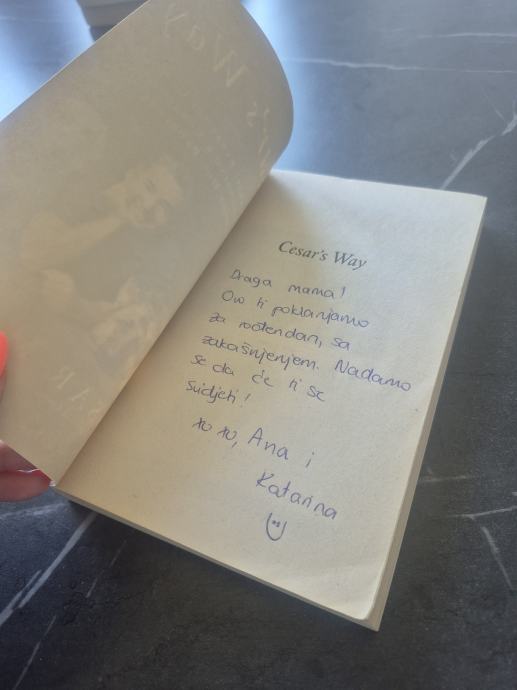 Cesar's Way
Draga mama!
Ovo ti poklanjamo
za rođendan, sa
zakašnjenjem. Nadamo
se da će ti se
svidjeti!
xo xo, Ana i
Katarina